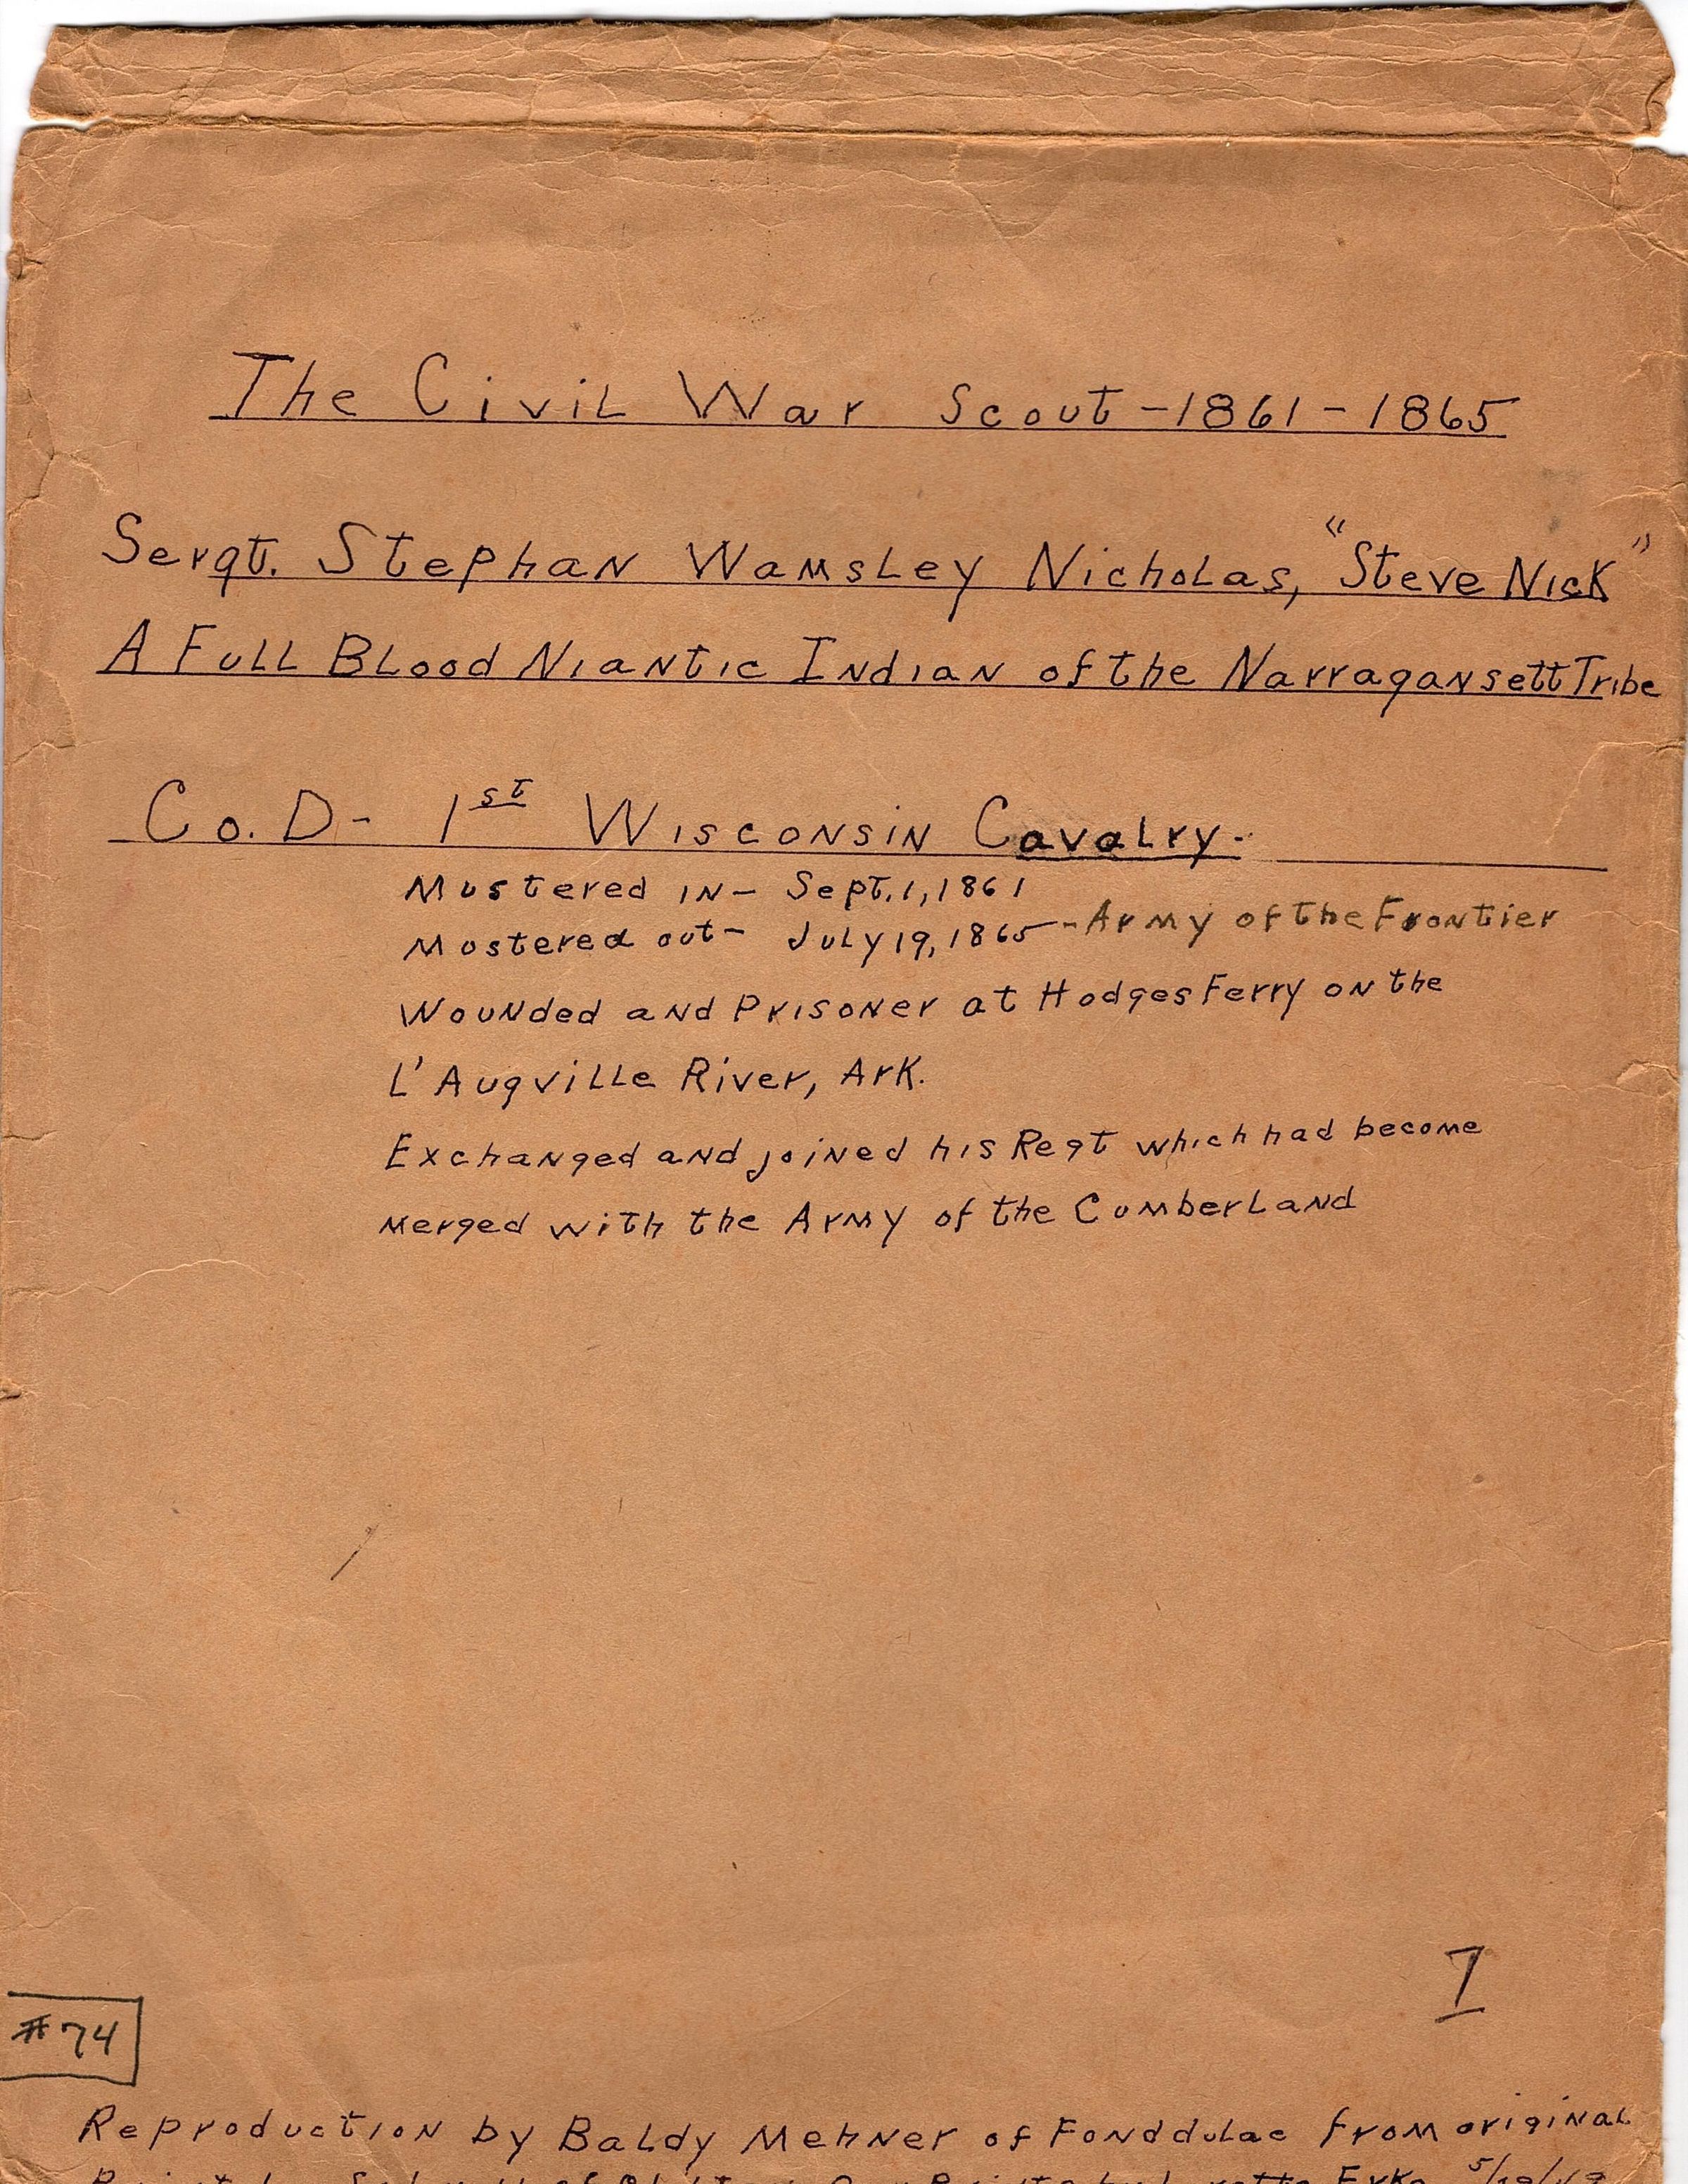 The Civil War Scout - 1861 - 1865
Sergt. Stephan Wamsley Nicholas, "Steve Nick"
A Full Blood Niantic Indian of the Narragansett Tribe
Co. D - 1st Wisconsin Cavalry.
Mustered in - Sept. 1, 1861
Mustered out - July 19, 1865 - Army of the Frontier
Wounded and Prisoner at Hodges Ferry on the
L'Augville River, Ark.
Exchanged and joined his Regt which had become
merged with the Army of the Cumberland
7
#74
Reproduction by Baldy Mehner of Fonddulac from original